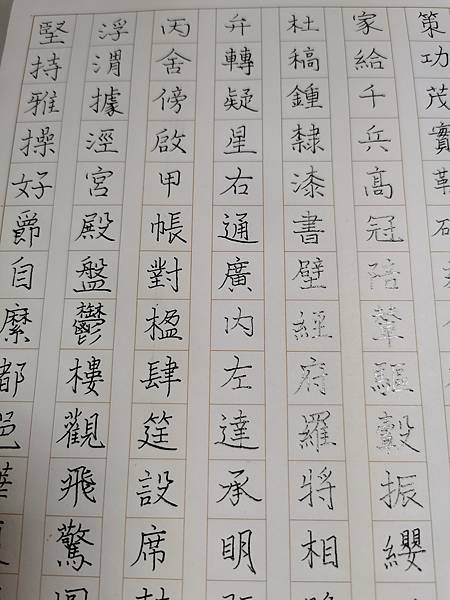 堅持雅操好爵自縻都邑華
浮渭據涇宮殿盤鬱樓觀飛驚
丙舍傍啟甲帳對楹肆筵設席
弁轉疑星右通廣內左達承明
杜稿鍾隸漆書壁經府羅將相
家給千兵高冠陪輦驅轂振纓
策功茂實勒